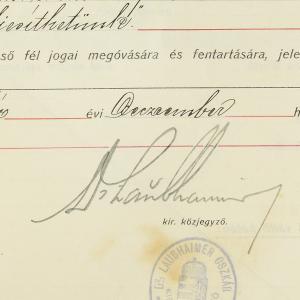 ső fél jogai megóvására és fentartására, jele
évi Deczember h
Dr Laubhaimer
kir. közjegyző.
DR LAUBHAIMER OSZKÁR